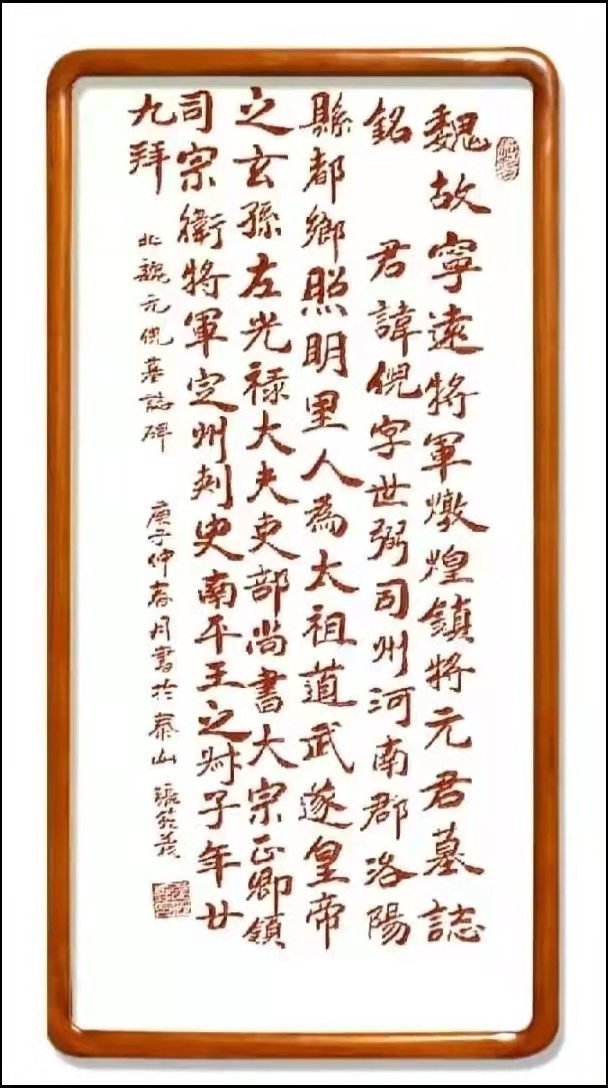 魏故寧遠將軍燉煌鎮將元君墓誌
銘 君諱倪字世弼司州河南郡洛陽
縣都鄉照明里人為太祖道武遂皇帝
之玄孫左光祿大夫吏部尚書大宗正卿領
司宗衛將軍定州刺史南平王之弟子年廿
九拜
北魏元倪墓誌碑 庚子仲春月書於泰山 張